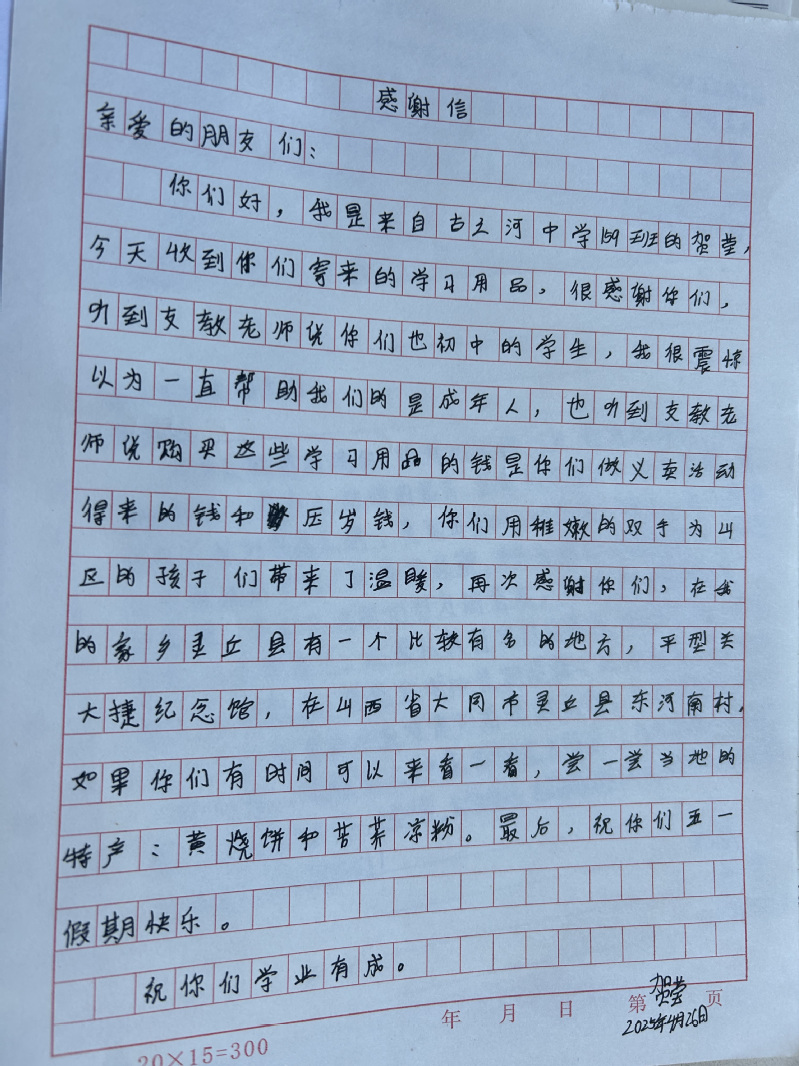 感谢信
亲爱的朋友们：
你们好，我是来自古之河中学159班的贺莹，
今天收到你们寄来的学习用品，很感谢你们，
听到支教老师说你们也初中的学生，我很震惊
以为一直帮助我们的是成年人，也听到支教老
师说购买这些学习用品的钱是你们做义卖活动
得来的钱和压岁钱，你们用稚嫩的双手为山
区的孩子们带来了温暖，再次感谢你们，在我
的家乡灵丘县有一个比较有名的地方，平型关
大捷纪念馆，在山西省大同市灵丘县东河南村，
如果你们有时间可以来看一看，尝一尝当地的
特产：黄烧饼和苦荞凉粉。最后，祝你们五一
假期快乐。
祝你们学业有成。
贺莹
年 月 日 第 页
2025年4月26日
20×15=300